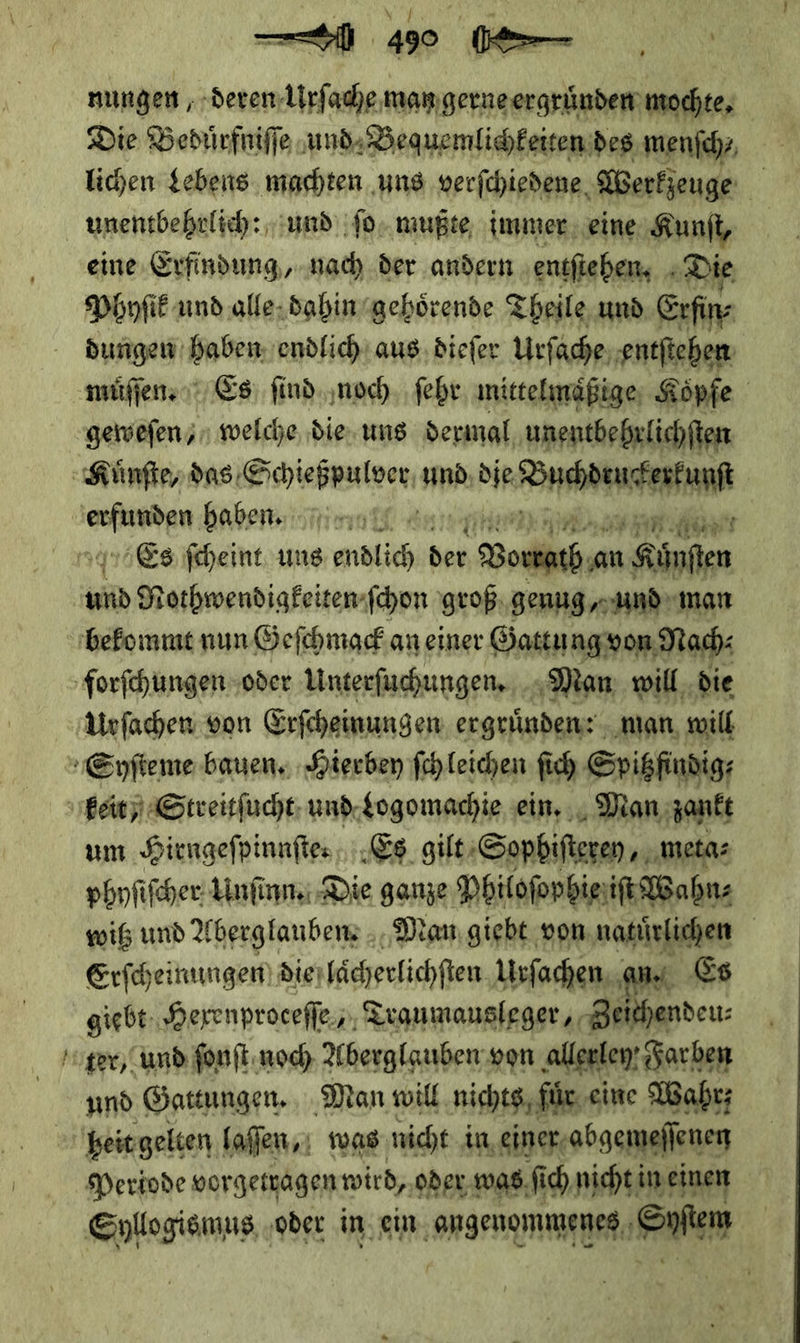 490
nungen, deren Urſache man gerne ergründen mochte.
Die Bedürfniſſe und Bequemlichkeiten des menſch-
lichen Lebens machten uns verſchiedene Werkzeuge
unentbehrlich: und ſo mußte immer eine Kunſt,
eine Erfindung, nach der andern entſtehen. Die
Phyſik und alle dahin gehörende Theile und Erfin-
dungen haben endlich aus dieſer Urſache entſtehen
müſſen. Es ſind noch ſehr mittelmäßige Köpfe
geweſen, welche die uns dermal unentbehrlichſten
Künſte, das Schießpulver und die Buchdruckerkunſt
erfunden haben.
Es ſcheint uns endlich der Vorrath an Künſten
und Nothwendigkeiten ſchon groß genug, und man
bekommt nun Geſchmack an einer Gattung von Nach-
forſchungen oder Unterſuchungen. Man will die
Urſachen von Erſcheinungen ergründen: man will
Syſteme bauen. Hierbey ſchleichen ſich Spitzfindig-
keit, Streitſucht und Logomachie ein. Man zankt
um Hirngeſpinnſte. Es gilt Sophiſterey, meta-
phyſiſcher Unſinn. Die ganze Philoſophie iſt Wahn-
witz und Aberglauben. Man giebt von natürlichen
Erſcheinungen die lächerlichſten Urſachen an. Es
giebt Hexenproceſſe, Traumausleger, Zeichendeu-
ter, und ſonſt noch Aberglauben von allerley Farben
und Gattungen. Man will nichts für eine Wahr-
heit gelten laſſen, was nicht in einer abgemeſſenen
Periode vorgetragen wird, oder was ſich nicht in einen
Syllogismus oder in ein angenommenes Syſtem